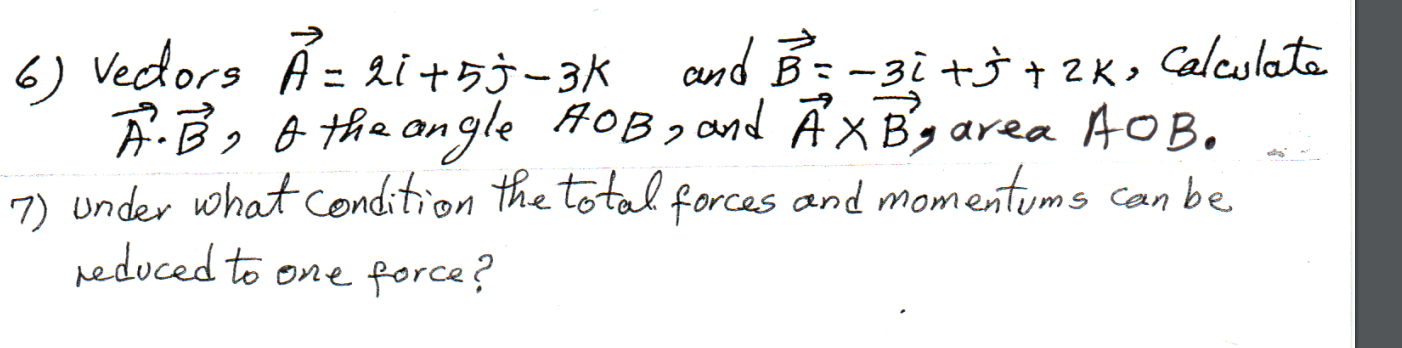 6) Vectors A⃗ = 2i + 5j - 3k and B⃗ = -3i + j + 2k, Calculate
A⃗·B⃗, θ the angle AOB, and A⃗ X B⃗, area AOB.
7) Under what Condition the total forces and momentums can be
reduced to one force?